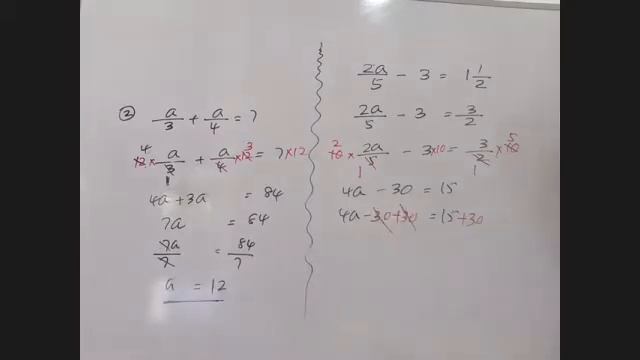 ② a/3 + a/4 = 7
4 12 × a/3 + a/4 × 12 3 = 7 × 12
1
4a + 3a = 84
7a = 64
7a/7 = 84/7
a = 12
2a/5 - 3 = 1 1/2
2a/5 - 3 = 3/2
2 10 × 2a/5 - 3 × 10 = 3/2 × 10 5
1 1
4a - 30 = 15
4a - 30 + 30 = 15 + 30